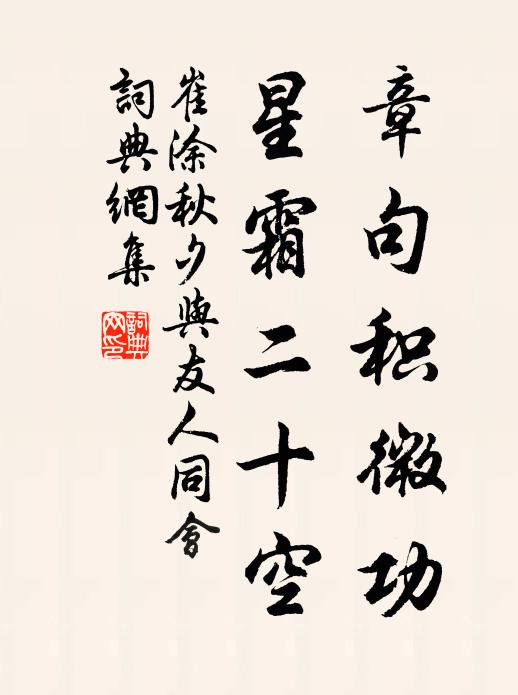 章句积微功
星霜二十空
崔涂秋夕與友人同會
詞典網集
詞典網印